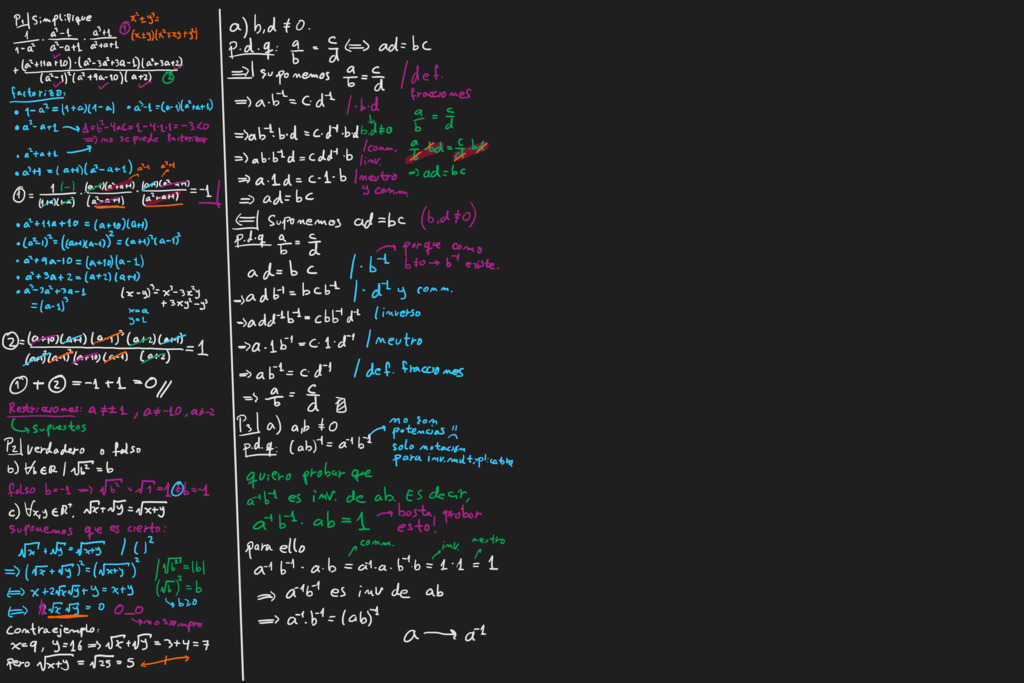 P1| Simplifique
x³±y³=
① (x±y)(x²∓xy+y²)
1/(1-a²) · (a³-1)/(a²-a+1) · (a³+1)/(a²+a+1)
+ (a²+11a+10)·(a³-3a²+3a-1)(a²+3a+2) / (a²-1)²(a²+9a-10)(a+2) ②
factorizo:
• 1-a² = (1+a)(1-a) • a³-1 = (a-1)(a²+a+1)
• a²-a+1 → Δ=b²-4ac = 1-4·1·1 = -3 <0
⇒ no se puede factorizar
• a²+a+1
• a³+1 = (a+1)(a²-a+1) a³-1 a³+1
① = 1 (-1)/(1+a)(1-a) · (a-1)(a²+a+1)/(a²-a+1) · (a+1)(a²-a+1)/(a²+a+1) = -1
• a²+11a+10 = (a+10)(a+1)
• (a²-1)² = ((a+1)(a-1))² = (a+1)²(a-1)²
• a²+9a-10 = (a+10)(a-1)
• a²+3a+2 = (a+2)(a+1)
• a³-3a²+3a-1 (x-y)³ = x³-3x²y
= (a-1)³ +3xy²-y³
x=a
y=1
② = (a+10)(a+1)(a-1)³(a+2)(a+1) / (a+1)²(a-1)²(a+10)(a-1)(a+2) = 1
① + ② = -1 + 1 = 0 //
Restricciones: a≠±1, a≠-10, a≠-2
↳ supuestos
P2| verdadero o falso
b) ∀b∈ℝ / √b² = b
falso b=-1 ⇒ √b² = √1 = 1 ≠ b=-1
c) ∀x,y∈ℝ⁺, √x+√y = √x+y
Suponemos que es cierto:
√x + √y = √x+y / ( )²
⇒ (√x + √y)² = (√x+y)² / √b² = |b|
⇔ x+2√x√y+y = x+y (√b)² = b
↳ b≥0
⇔ 2√x√y = 0 0_0
↳ no siempre
contraejemplo:
x=9, y=16 ⇒ √x+√y = 3+4 = 7
pero √x+y = √25 = 5
a) b,d ≠ 0.
p.d.q: a/b = c/d ⇔ ad=bc
⇒| suponemos a/b = c/d / def. fracciones
⇒ a·b⁻¹ = c·d⁻¹ / ·b·d
a/b = c/d
⇒ ab⁻¹·b·d = c·d⁻¹·bd b,d≠0
⇒ ab·b⁻¹d = cdd⁻¹·b /comm. /inv. a/b bd = c/d bd
⇒ a·1d = c·1·b /neutro y comm. ⇒ ad=bc
⇒ ad=bc
⇐| Suponemos ad=bc (b,d≠0)
p.d.q a/b = c/d
porque como
b≠0 → b⁻¹ existe.
ad = bc / · b⁻¹
⇒ adb⁻¹ = bcb⁻¹ / · d⁻¹ y comm.
⇒ add⁻¹b⁻¹ = cbb⁻¹d⁻¹ / inverso
⇒ a·1b⁻¹ = c·1·d⁻¹ / neutro
⇒ ab⁻¹ = c·d⁻¹ / def. fracciones
⇒ a/b = c/d
P3| a) a,b ≠ 0
p.d.q: (ab)⁻¹ = a⁻¹b⁻¹
no son
potencias !!
solo notación
para inv. multiplicativo
quiero probar que
a⁻¹b⁻¹ es inv. de ab. Es decir,
a⁻¹b⁻¹·ab = 1 → basta probar esto!
para ello comm. inv. neutro
a⁻¹b⁻¹·a·b = a⁻¹·a·b⁻¹·b = 1·1 = 1
⇒ a⁻¹b⁻¹ es inv de ab
⇒ a⁻¹·b⁻¹ = (ab)⁻¹
a → a⁻¹